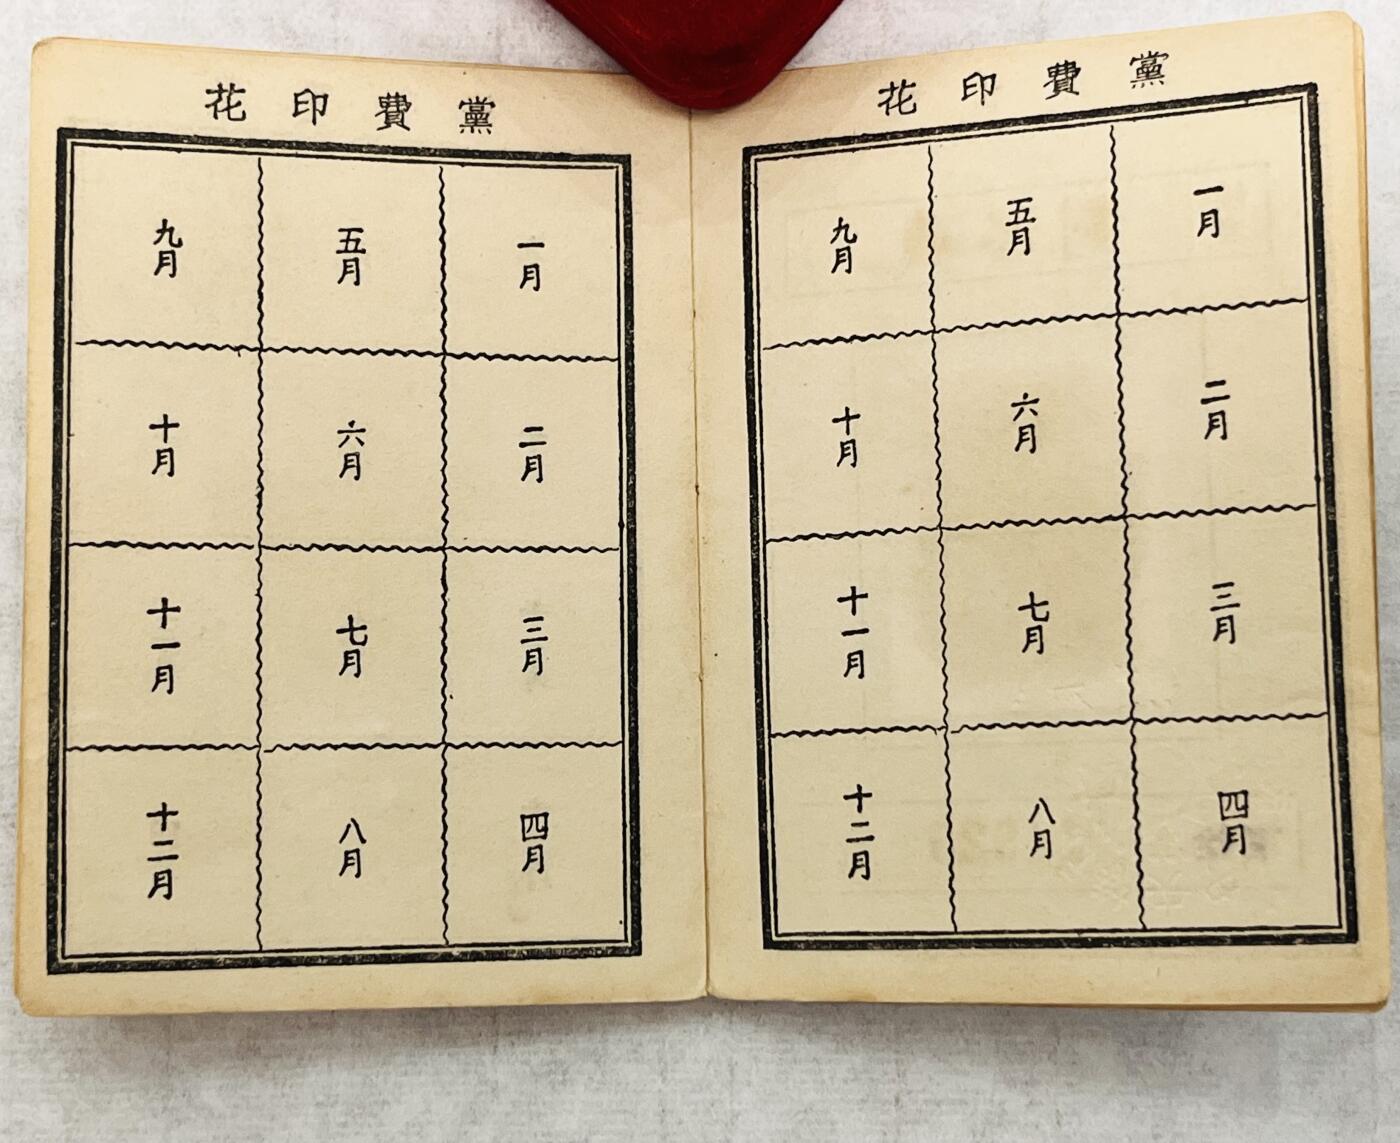 黨費印花
一月
二月
三月
四月
五月
六月
七月
八月
九月
十月
十一月
十二月
黨費印花
一月
二月
三月
四月
五月
六月
七月
八月
九月
十月
十一月
十二月